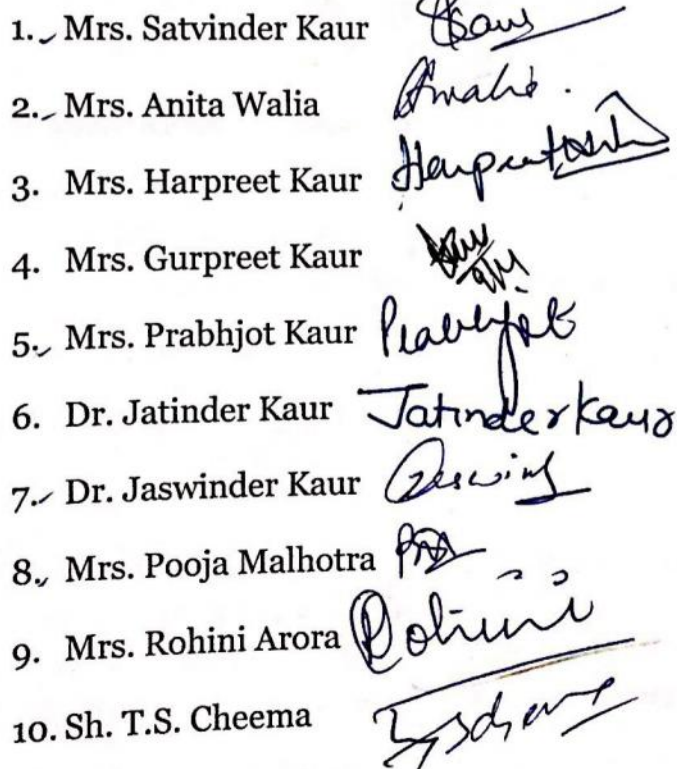 1. Mrs. Satvinder Kaur Kaur
2. Mrs. Anita Walia
3. Mrs. Harpreet Kaur Harpreet
4. Mrs. Gurpreet Kaur
5. Mrs. Prabhjot Kaur Prabhjot
6. Dr. Jatinder Kaur Jatinder Kaur
7. Dr. Jaswinder Kaur
8. Mrs. Pooja Malhotra
9. Mrs. Rohini Arora Rohini
10. Sh. T.S. Cheema